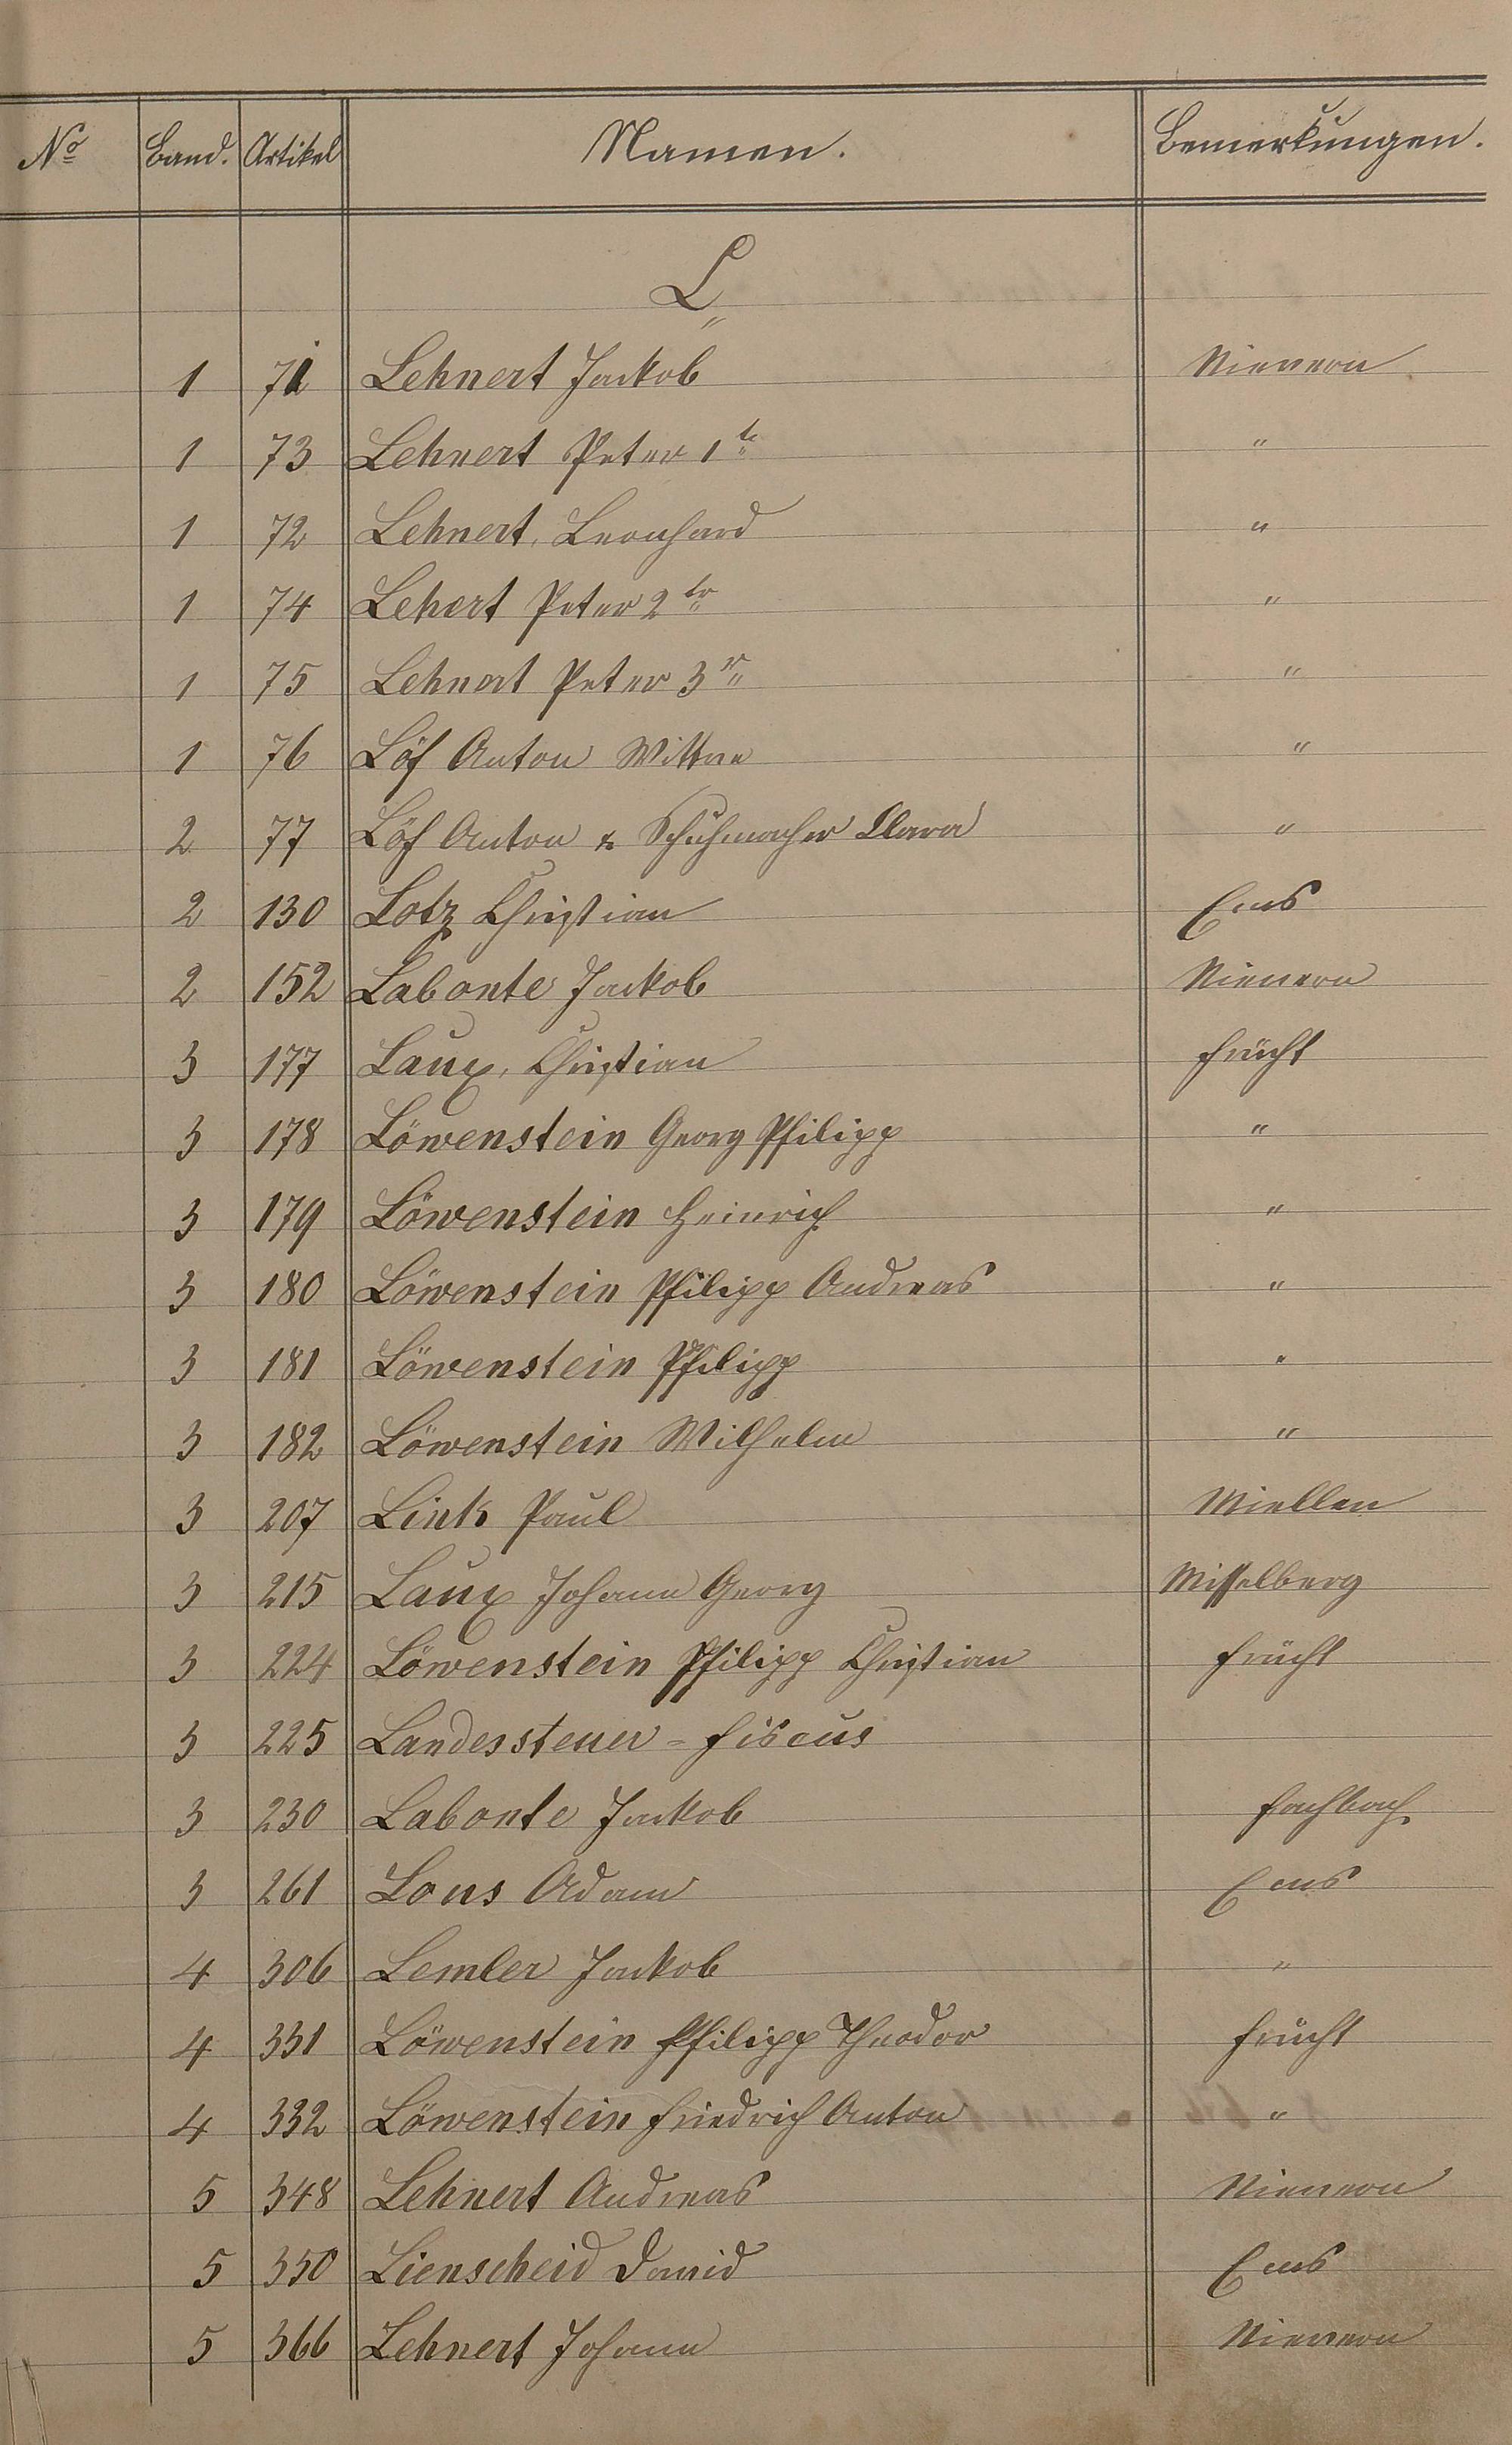 No Band. Artikel Namen. Bemerkungen.
L
1 71 Lehnert Jackob Nievern
1 73 Lehnert Peter 1te "
1 72 Lehnert, Leonhard "
1 74 Lehert Peter 2tr "
1 75 Lehnert Peter 3r "
1 76 Löf Anton Wittwe "
2 77 Löf Anton & Schuhmacher Clara "
2 130 Lotz Christian Ems
2 152 Labonte Jackob Nievern
3 177 Laux, Christian Frücht
3 178 Löwenstein Georg Philipp "
3 179 Löwenstein Heinrich "
3 180 Löwenstein Philipp Andreas "
3 181 Löwenstein Philipp "
3 182 Löwenstein Wilhelm "
3 207 Link Paul Miellen
3 215 Laux Johann Georg Misselberg
3 224 Löwenstein Philipp Christian Frücht
3 225 Landessteuer-Fiscus
3 230 Labonte Jackob Fachbach
3 261 Lous Adam Ems
4 306 Lemler Jackob "
4 331 Löwenstein Philipp Theodor Frücht
4 332 Löwenstein Friedrich Anton "
5 348 Lehnert Andreas Nievern
5 350 Lienscheid David Ems
5 366 Lehnert Johann Nievern